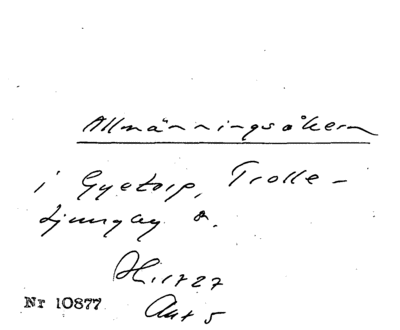 Allmänningsåkern
i Gyetorp, Trolle-
Ljungby s.
H. 1727
Akt 5
Nr 10877